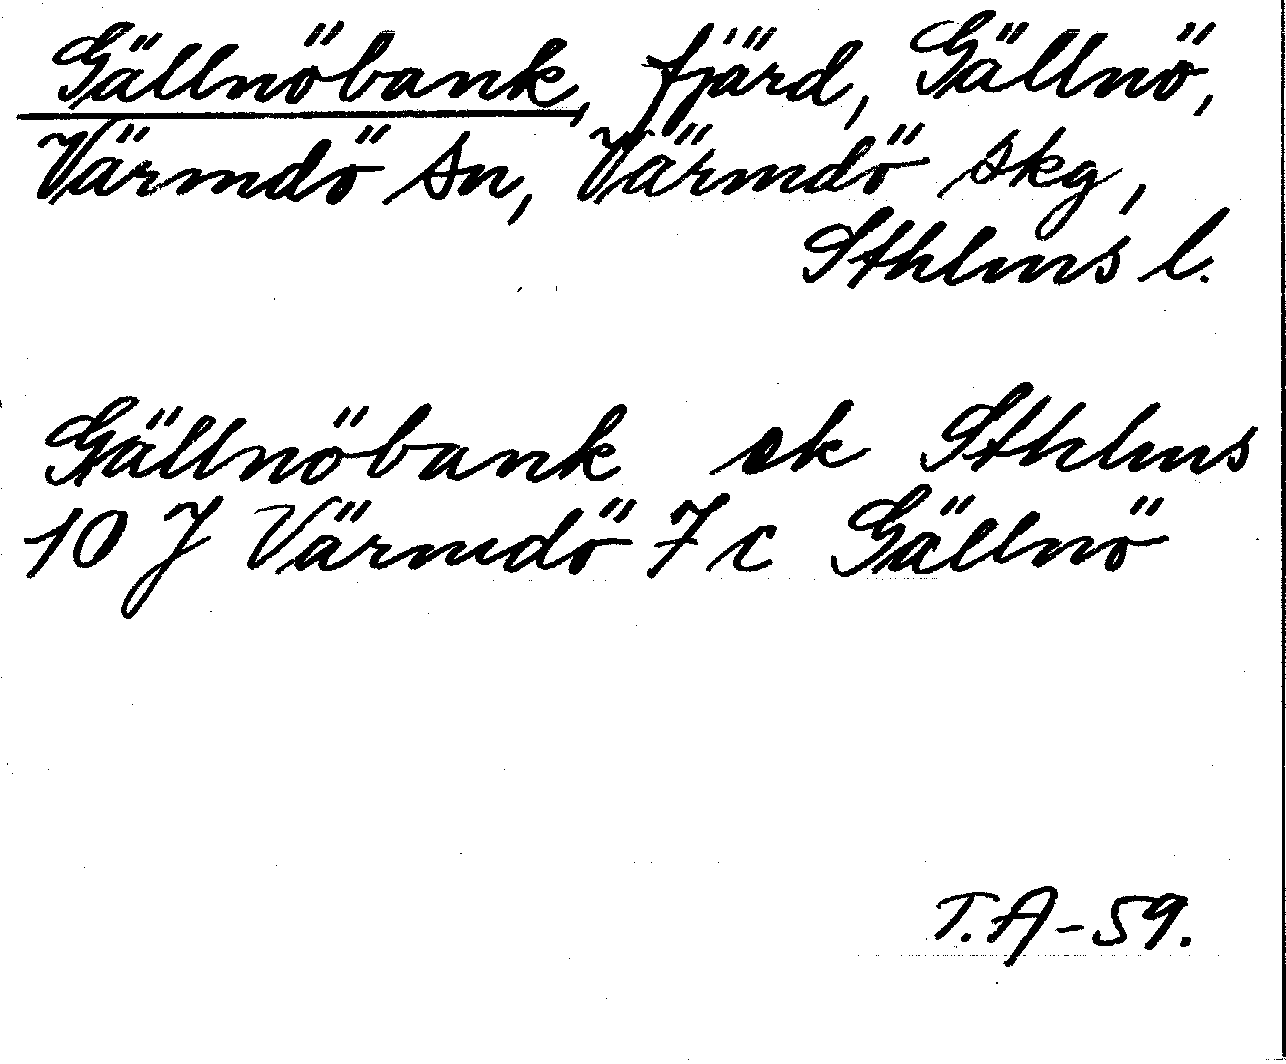 Gällnöbank, fjärd, Gällnö,
Värmdö sn, Värmdö skg,
Sthlms l.
Gällnöbank ek Sthlms
10 J Värmdö 7 c Gällnö
T.A-59.